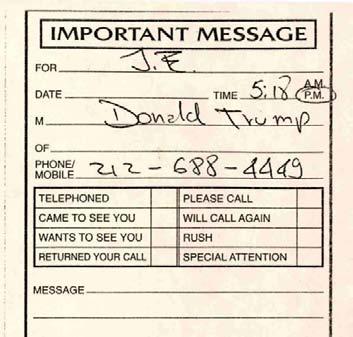 IMPORTANT MESSAGE
FOR J.E.
DATE TIME 5:18 A.M. P.M.
M Donald Trump
OF
PHONE/MOBILE 212-688-4449
TELEPHONED PLEASE CALL
CAME TO SEE YOU WILL CALL AGAIN
WANTS TO SEE YOU RUSH
RETURNED YOUR CALL SPECIAL ATTENTION
MESSAGE